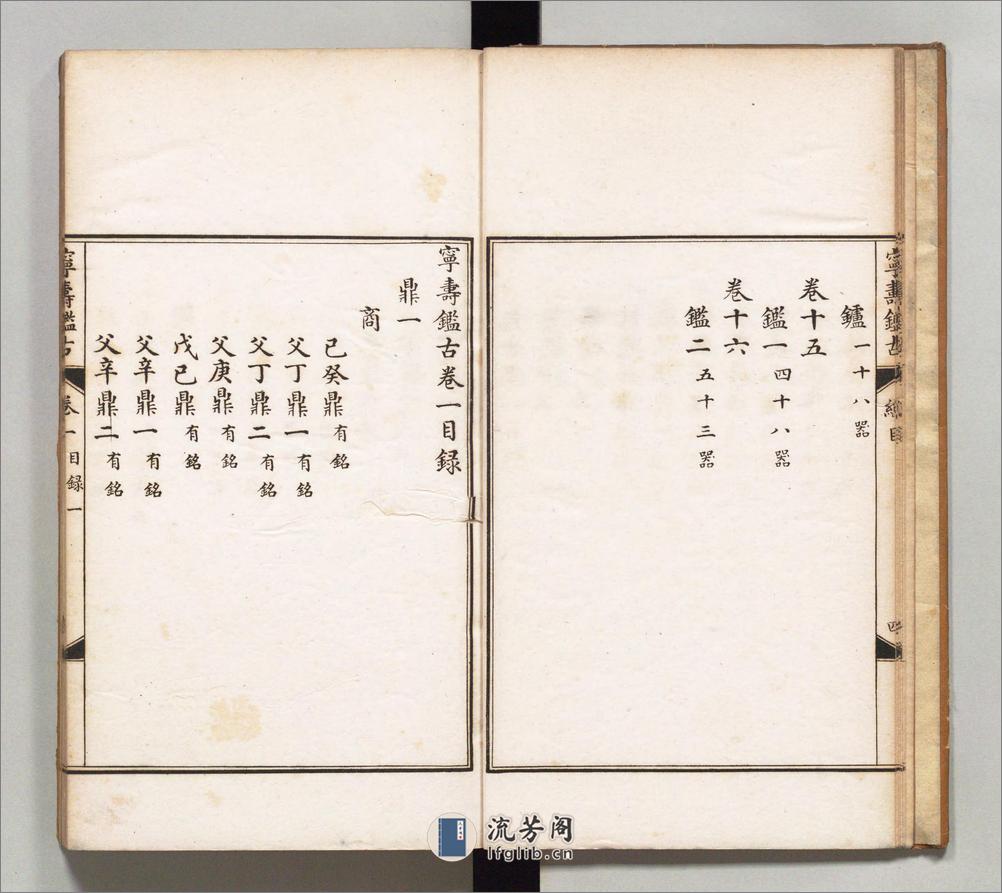 寧壽鑑古 總目 四
鑪一十八器
卷十五
鑑一四十八器
卷十六
鑑二五十三器
寧壽鑑古卷一目録
鼎一
商
己癸鼎有銘
父丁鼎一有銘
父丁鼎二有銘
父庚鼎有銘
戊己鼎有銘
父辛鼎一有銘
父辛鼎二有銘
寧壽鑑古 卷一目録 一
流芳阁
lfglib.cn